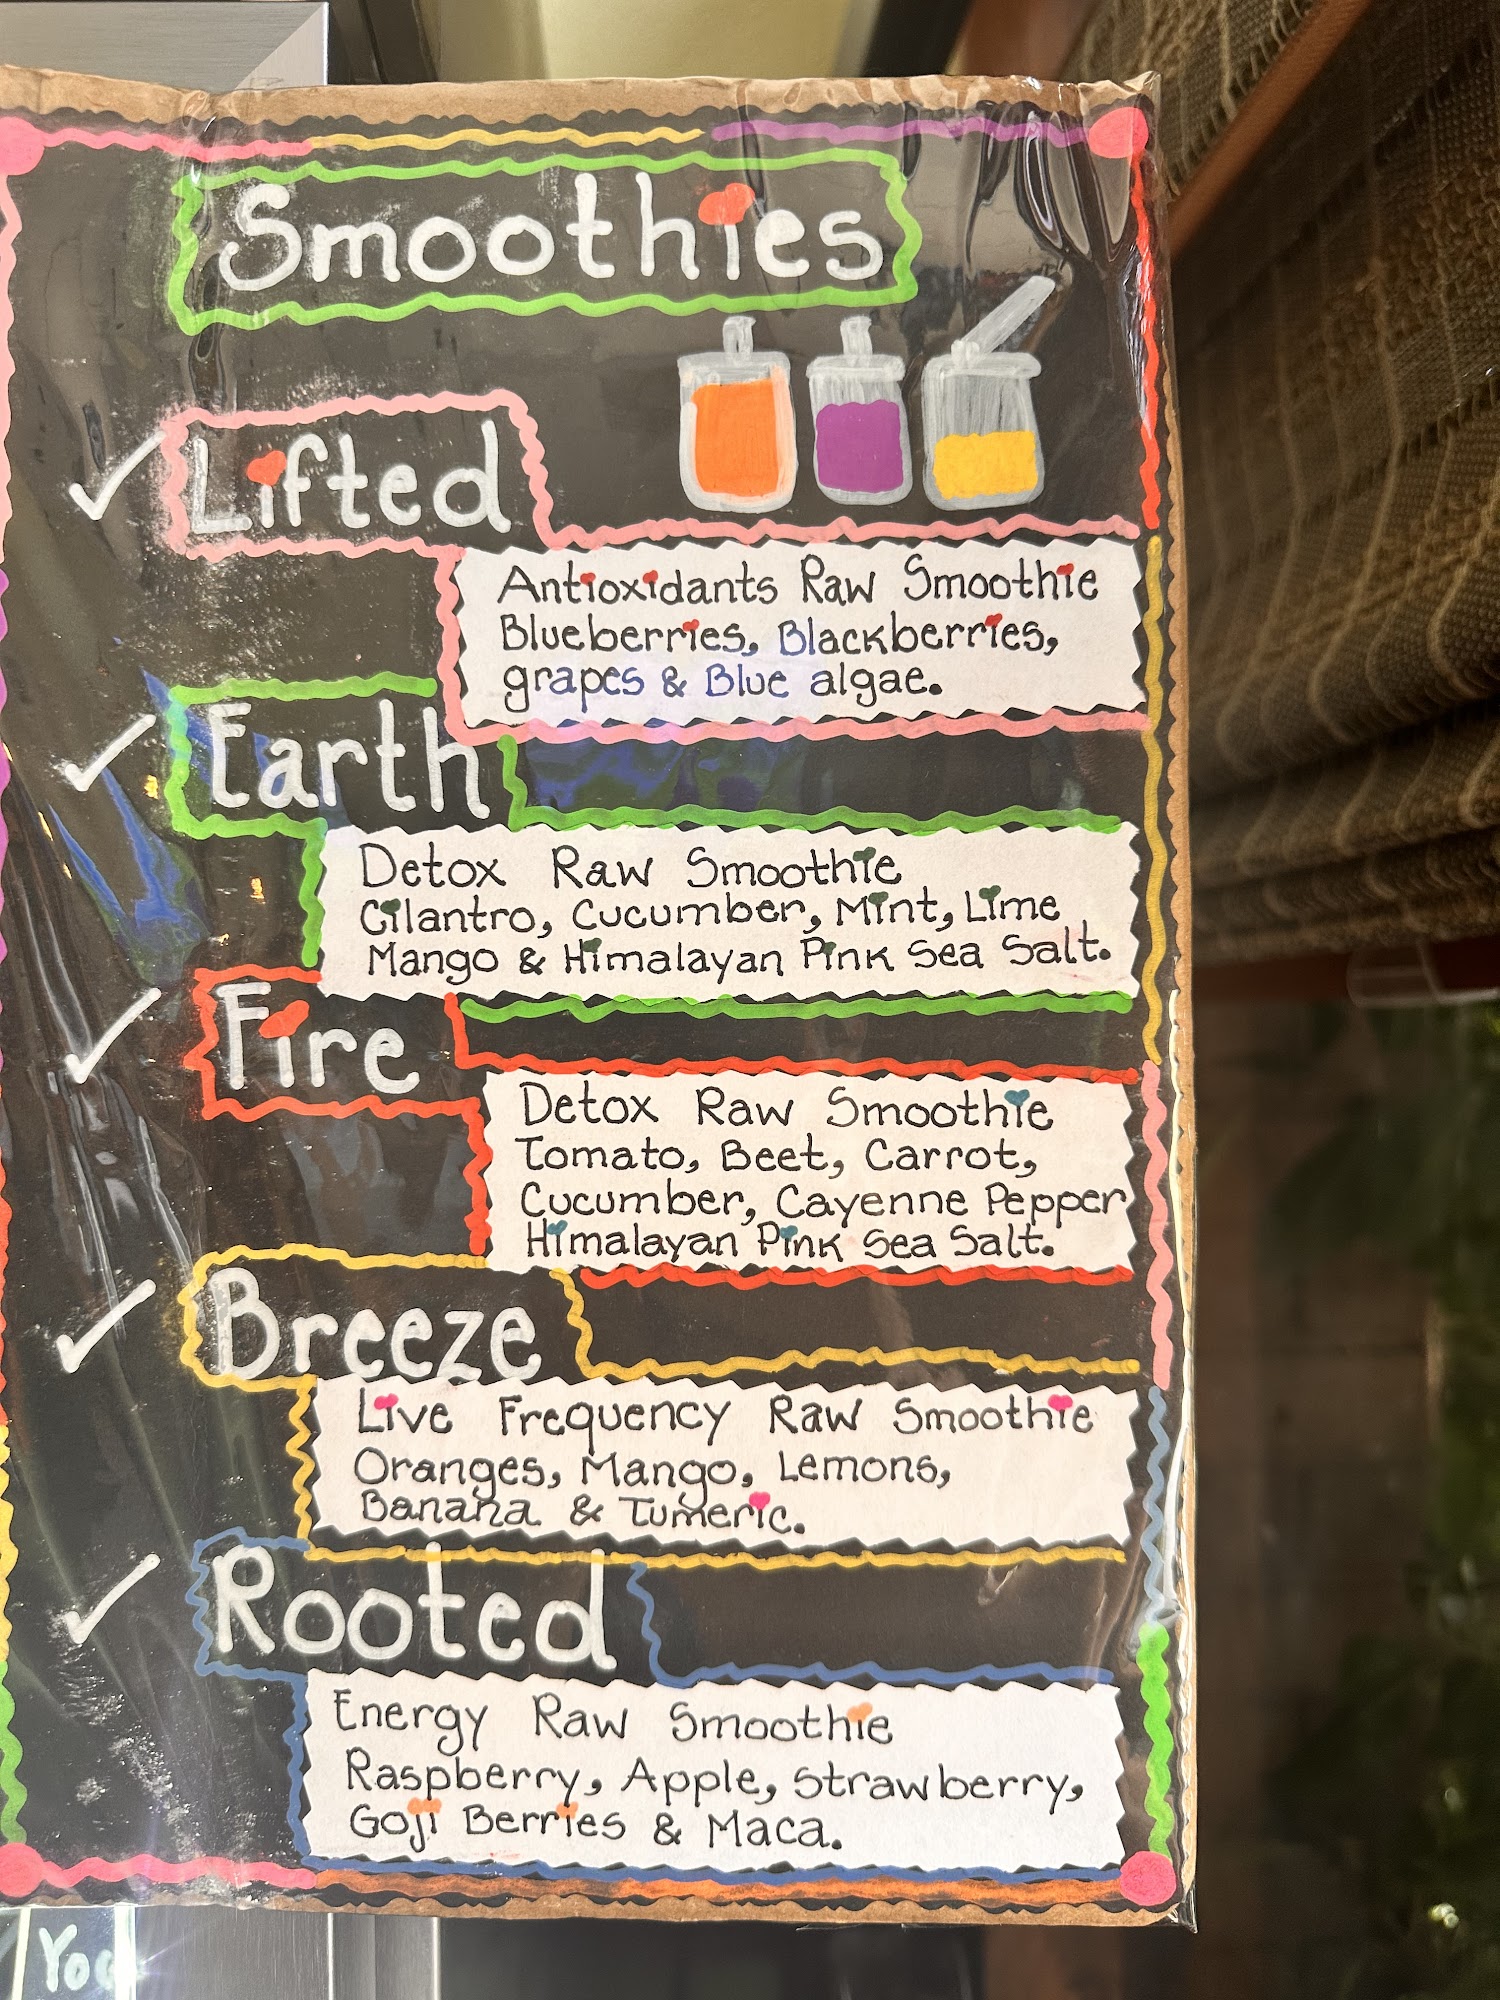 Smoothies
Lifted
Antioxidants Raw Smoothie
Blueberries, Blackberries,
grapes & Blue algae.
Earth
Detox Raw Smoothie
Cilantro, Cucumber, Mint, Lime
Mango & Himalayan Pink Sea Salt.
Fire
Detox Raw Smoothie
Tomato, Beet, Carrot,
Cucumber, Cayenne Pepper
Himalayan Pink Sea Salt.
Breeze
Live Frequency Raw Smoothie
Oranges, Mango, Lemons,
Banana & Tumeric.
Rooted
Energy Raw Smoothie
Raspberry, Apple, Strawberry,
Goji Berries & Maca.
You